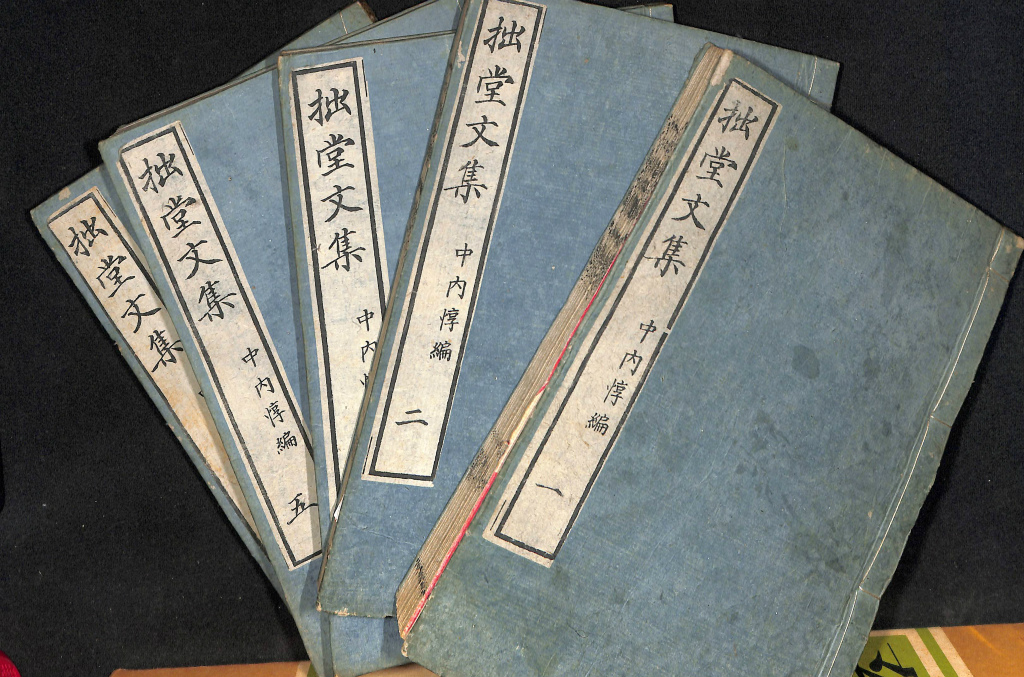 拙堂文集 中内惇編 一
拙堂文集 中内惇編 二
拙堂文集 中内
拙堂文集 中内惇編 五
拙堂文集